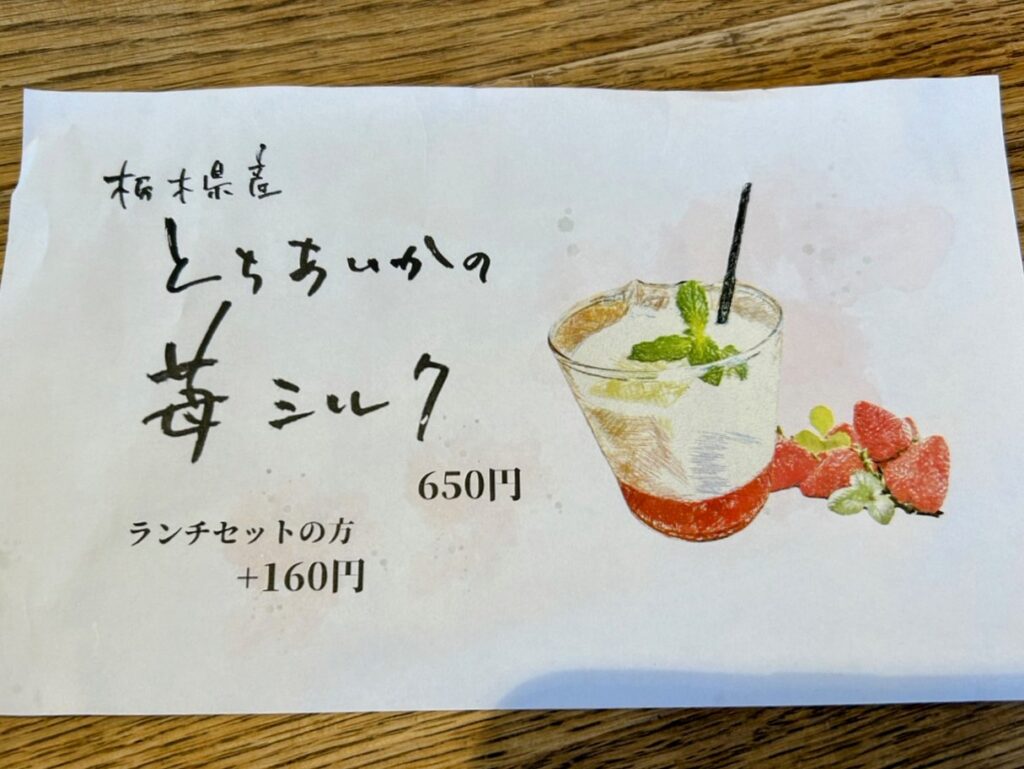 栃木県産
とちあいかの
苺ミルク
650円
ランチセットの方
+160円